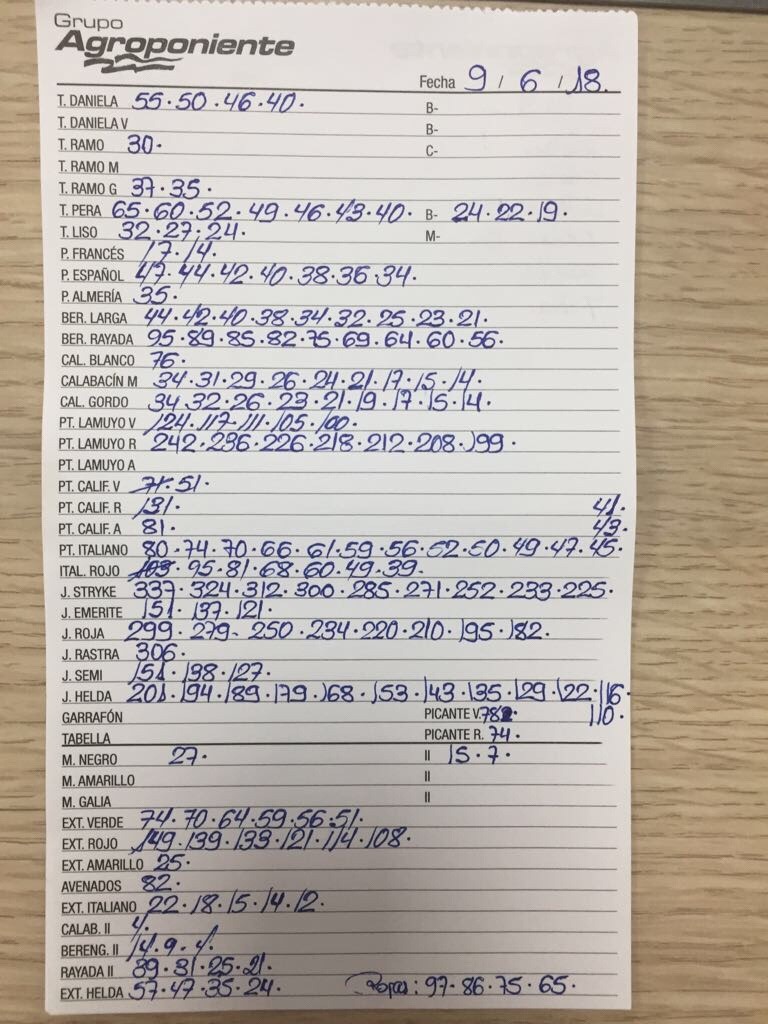 Grupo
Agroponiente
Fecha 9 / 6 / 18.
T. DANIELA 55·50·46·40· B-
T. DANIELA V B-
T. RAMO 30· C-
T. RAMO M
T. RAMO G 37·35·
T. PERA 65·60·52·49·46·43·40· B- 24·22·19·
T. LISO 32·27·24· M-
P. FRANCÉS 17·14·
P. ESPAÑOL 47·44·42·40·38·36·34·
P. ALMERÍA 35·
BER. LARGA 44·42·40·38·34·32·25·23·21·
BER. RAYADA 95·89·85·82·75·69·64·60·56·
CAL. BLANCO 76·
CALABACÍN M 34·31·29·26·24·21·17·15·14·
CAL. GORDO 34·32·26·23·21·19·17·15·14·
PT. LAMUYO V 124·117·111·105·100·
PT. LAMUYO R 242·236·226·218·212·208·199·
PT. LAMUYO A
PT. CALIF. V 71·51·
PT. CALIF. R 131· 41·
PT. CALIF. A 81· 43·
PT. ITALIANO 80·74·70·66·61·59·56·52·50·49·47·45·
ITAL. ROJO 103·95·81·68·60·49·39·
J. STRYKE 337·324·312·300·285·271·252·233·225·
J. EMERITE 151·137·121·
J. ROJA 299·279·250·234·220·210·195·182·
J. RASTRA 306·
J. SEMI 151·138·127·
J. HELDA 201·194·189·179·168·153·143·135·129·122·116·
GARRAFÓN PICANTE V. 78· 110·
TABELLA PICANTE R. 74·
M. NEGRO 27· II 15·7·
M. AMARILLO II
M. GALIA II
EXT. VERDE 74·70·64·59·56·51·
EXT. ROJO 149·139·133·121·114·108·
EXT. AMARILLO 25·
AVENADOS 82·
EXT. ITALIANO 22·18·15·14·12·
CALAB. II 4·
BERENG. II 14·9·4·
RAYADA II 39·31·25·21·
EXT. HELDA 57·47·35·24· 97·86·75·65·